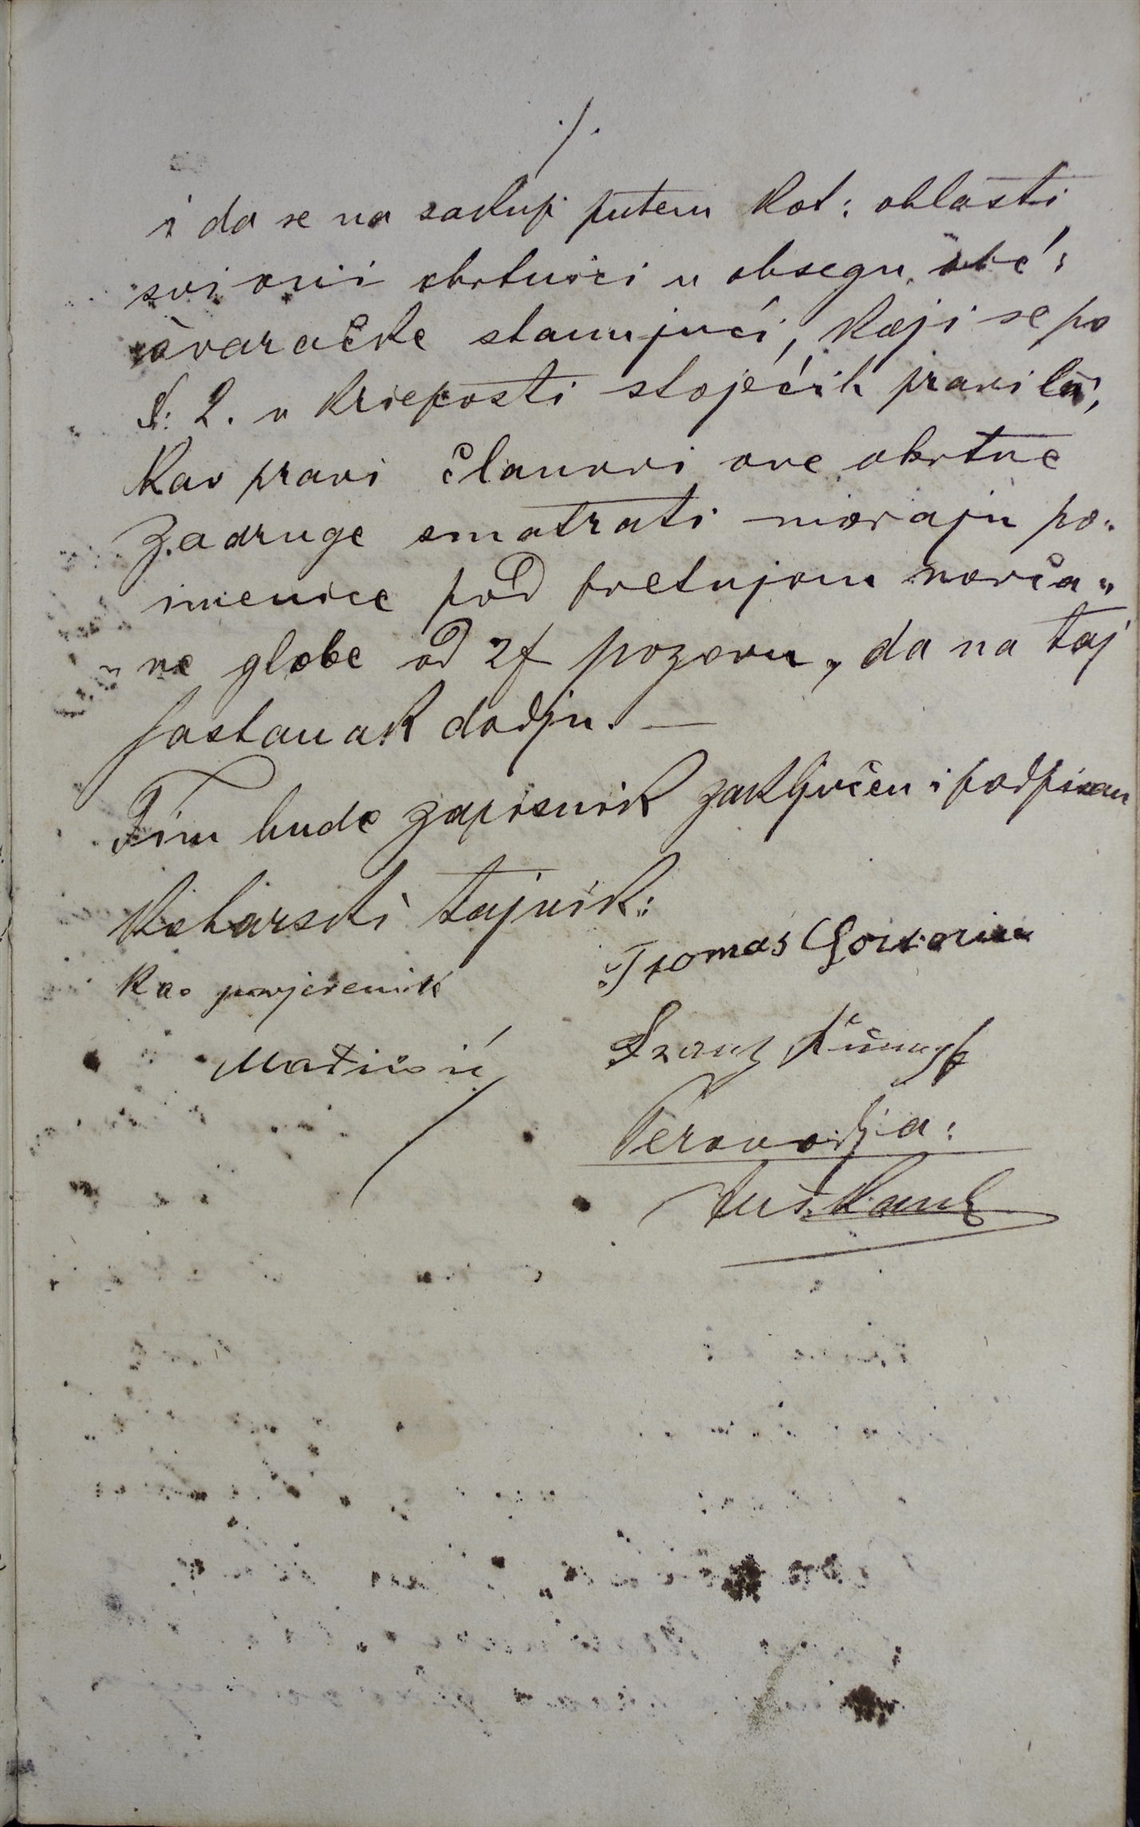 ./.
i da se na zaklup putem kot: oblasti
svi oni obrtnici u obsegu obć:
ovaračke stanujući, koji se po
§: 2. u krieposti stojećih pravila,
kao pravi članovi ove obrtne
zadruge smatrati moraju po„
imenice pod pretnjom novča„
„ne globe od 2f pozovu, da na taj
sastanak dodju. —
Tim bude zapisnik zaključen i podpisan
Kotarski tajnik:
Thomas
kao povjerenik
Franz
Perovodja: